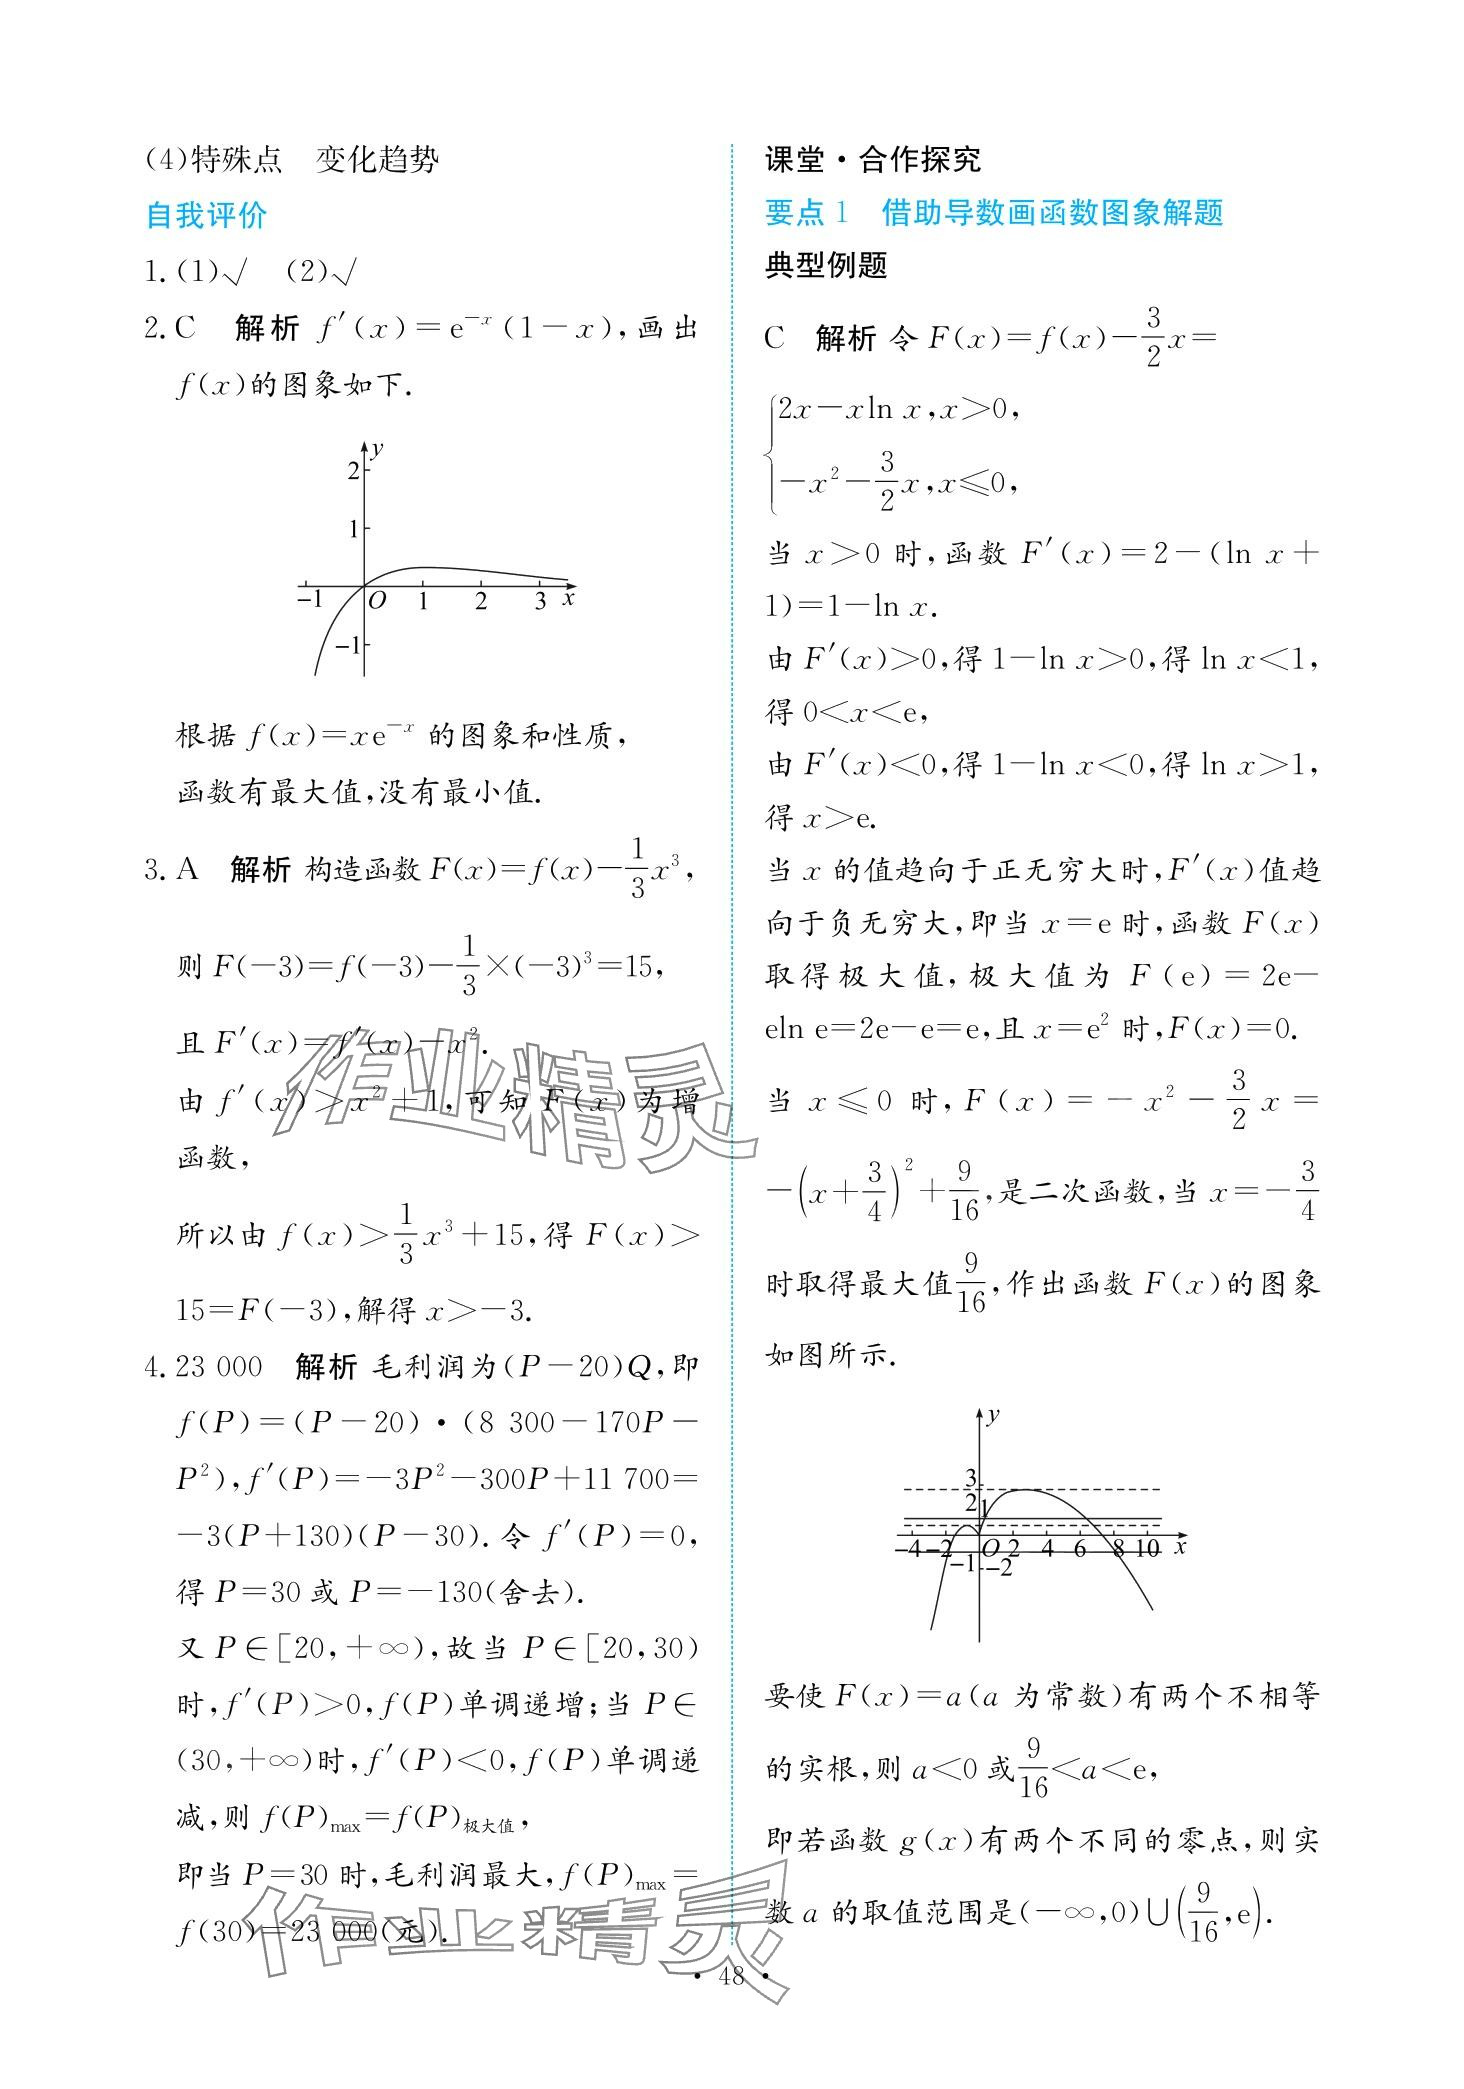 (4)特殊点　变化趋势
自我评价
1. (1)√　(2)√
2. C　解析 f′(x)=e⁻ˣ(1-x),画出
f(x)的图象如下.
y
2
1
-1 O 1 2 3 x
-1
根据 f(x)=xe⁻ˣ 的图象和性质,
函数有最大值,没有最小值.
3. A　解析 构造函数 F(x)=f(x)-1/3x³,
则 F(-3)=f(-3)-1/3×(-3)³=15,
且 F′(x)=f′(x)-x².
由 f′(x)>x²+1,可知 F(x)为增
函数,
所以由 f(x)>1/3x³+15,得 F(x)>
15=F(-3),解得 x>-3.
4. 23 000　解析 毛利润为(P-20)Q,即
f(P)=(P-20)·(8 300-170P-
P²),f′(P)=-3P²-300P+11 700=
-3(P+130)(P-30).令 f′(P)=0,
得 P=30 或 P=-130(舍去).
又 P∈[20,+∞),故当 P∈[20,30)
时,f′(P)>0,f(P)单调递增;当 P∈
(30,+∞)时,f′(P)<0,f(P)单调递
减,则 f(P)max=f(P)极大值,
即当 P=30 时,毛利润最大,f(P)max=
f(30)=23 000(元).
课堂·合作探究
要点 1　借助导数画函数图象解题
典型例题
C　解析 令 F(x)=f(x)-3/2x=
{2x-xln x,x>0,
-x²-3/2x,x≤0,
当 x>0 时,函数 F′(x)=2-(ln x+
1)=1-ln x.
由 F′(x)>0,得 1-ln x>0,得 ln x<1,
得 0<x<e,
由 F′(x)<0,得 1-ln x<0,得 ln x>1,
得 x>e.
当 x 的值趋向于正无穷大时,F′(x)值趋
向于负无穷大,即当 x=e 时,函数 F(x)
取得极大值,极大值为 F(e)=2e-
eln e=2e-e=e,且 x=e² 时,F(x)=0.
当 x≤0 时,F(x)=-x²-3/2x=
-(x+3/4)²+9/16,是二次函数,当 x=-3/4
时取得最大值9/16,作出函数 F(x)的图象
如图所示.
y
3
2 1
-4 -2 O 2 4 6 8 10 x
-1 -2
要使 F(x)=a(a 为常数)有两个不相等
的实根,则 a<0 或9/16<a<e,
即若函数 g(x)有两个不同的零点,则实
数 a 的取值范围是(-∞,0)∪(9/16,e).
作业精灵
作业精灵
· 48 ·